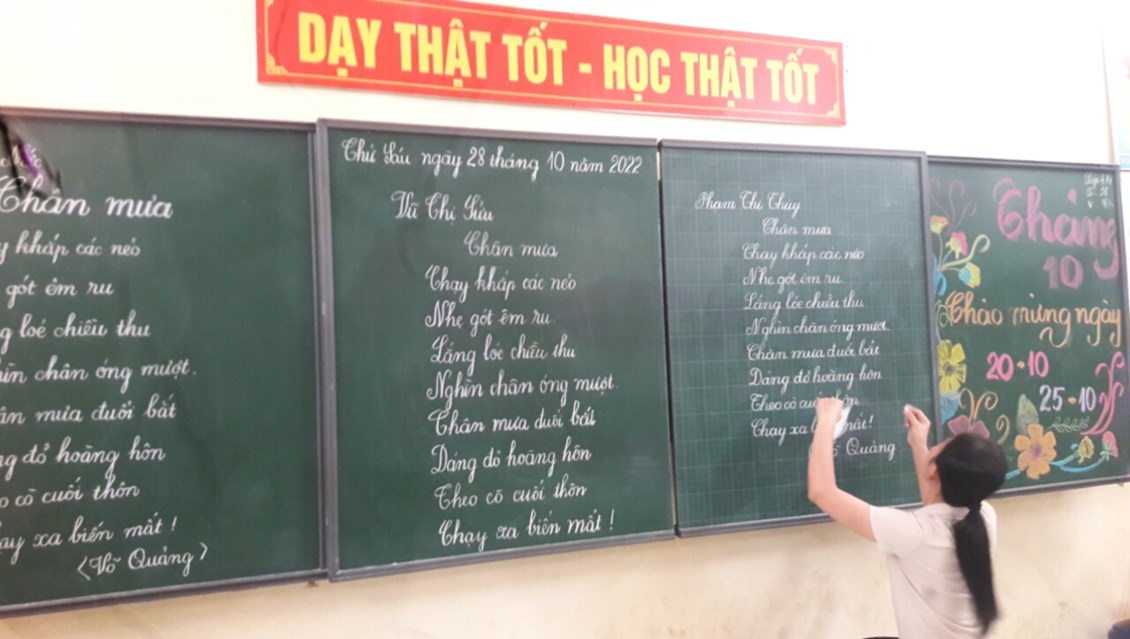 DẠY THẬT TỐT - HỌC THẬT TỐT
Chân mưa
khắp các nẻo
gót êm ru
loé chiều thu
chân óng mượt.
mưa đuổi bắt
đỏ hoàng hôn
cò cuối thôn
xa biến mất!
(Võ Quảng)
Thứ Sáu ngày 28 tháng 10 năm 2022
Vũ Thị Sửu
Chân mưa
Chạy khắp các nẻo
Nhẹ gót êm ru.
Lắng loé chiều thu
Nghìn chân óng mượt.
Chân mưa đuổi bắt
Dáng đỏ hoàng hôn
Theo cò cuối thôn
Chạy xa biến mất!
Phạm Thị Thủy
Chân mưa
Chạy khắp các nẻo
Nhẹ gót êm ru.
Lắng lóe chiều thu
Nghìn chân óng mượt
Chân mưa đuổi bắt
Dáng đỏ hoàng hôn
Theo cò
Chạy xa mất!
Quảng
Tháng
10
Chào mừng ngày
20-10
25-10